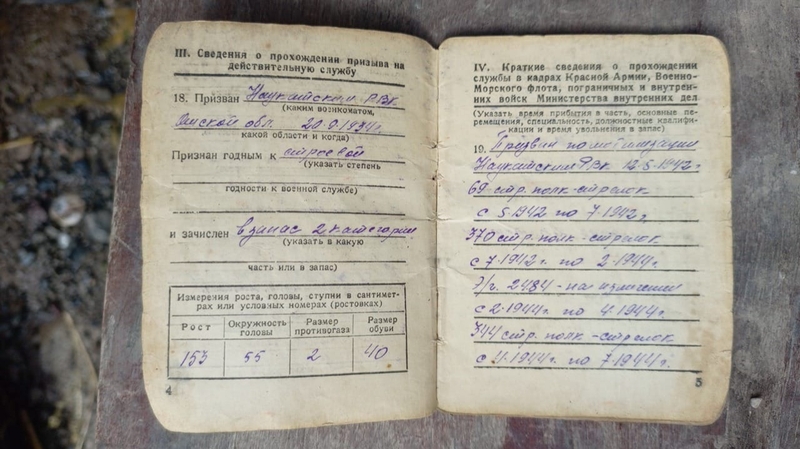 III. Сведения о прохождении призыва на
действительную службу
18. Призван Наукатским РВК
(каким военкоматом,
Ошской обл. 20.9.1934г.
какой области и когда)
Признан годным к строевой
(указать степень
годности к военной службе)
и зачислен в запас 2 категории
(указать в какую
часть или в запас)
Измерения роста, головы, ступни в сантимет-
рах или условных номерах (ростовках)
Рост Окружность головы Размер противогаза Размер обуви
153 55 2 40
4
IV. Краткие сведения о прохождении
службы в кадрах Красной Армии, Военно-
Морского флота, пограничных и внутрен-
них войск Министерства внутренних дел
(Указать время прибытия в часть, основные пе-
ремещения, специальность, должностные квалифи-
кации и время увольнения в запас)
19. Призван по мобилизации
Наукатским РВК 12-5-1942г.
69 стр. полк - стрелок
с 5.1942 по 7.1942г.
370 стр. полк - стрелок
с 7.1942г. по 2.1944г.
2484 - на излечении
с 2.1944г. по 4.1944г.
344 стр. полк - стрелок
с 4.1944г. по 7.1944г.
5